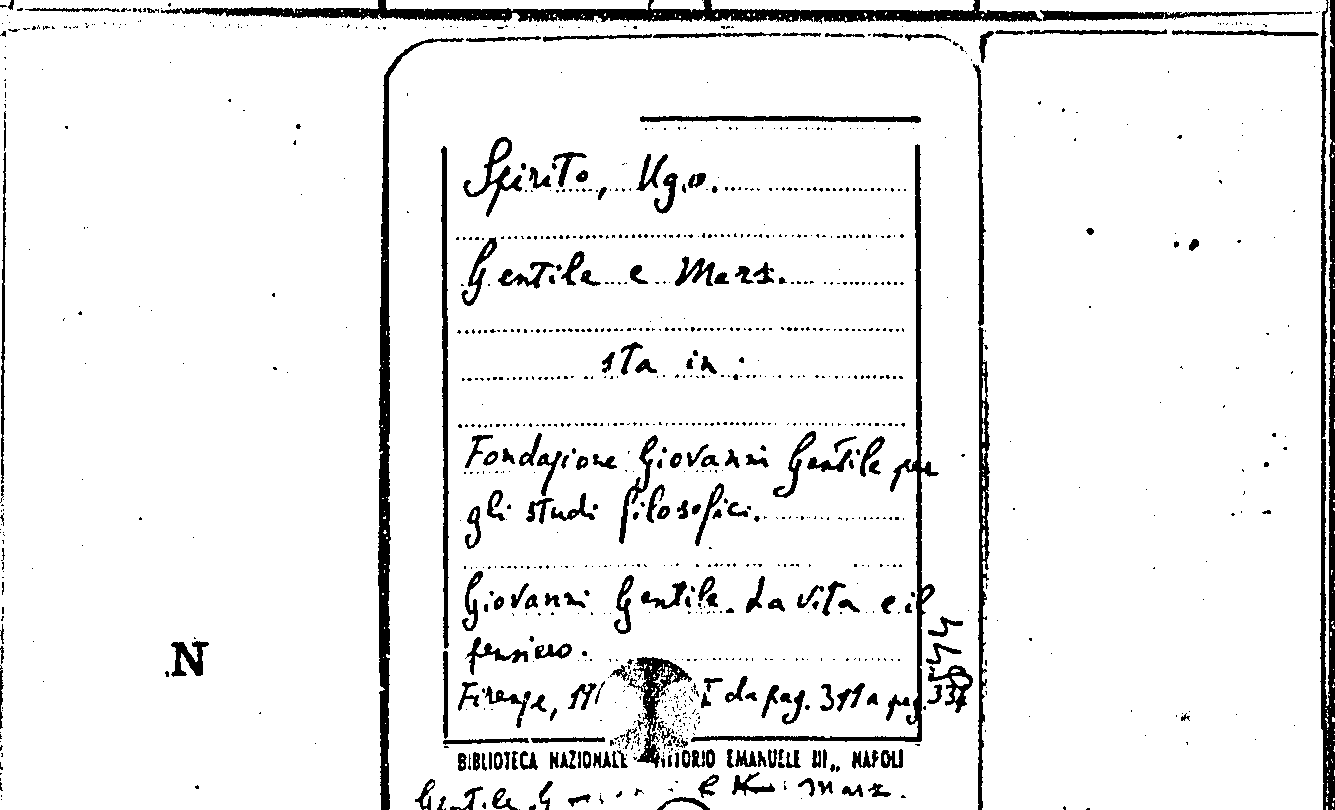 Spirito, Ugo.
Gentile e Marx.
sta in:
Fondazione Giovanni Gentile per
gli studi filosofici.
Giovanni Gentile. La vita e il
pensiero.
Firenze, I da pag. 311 a pag. 334
N
BIBLIOTECA NAZIONALE VITTORIO EMANUELE III,, NAPOLI
Gentile G e Marx.